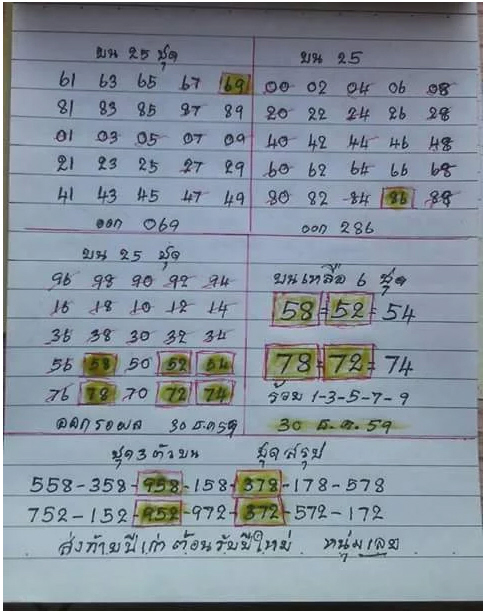 บน 25 ชุด
61 63 65 67 69
81 83 85 87 89
01 03 05 07 09
21 23 25 27 29
41 43 45 47 49
ออก 069
บน 25
00 02 04 06 08
20 22 24 26 28
40 42 44 46 48
60 62 64 66 68
80 82 84 86 88
ออก 286
บน 25 ชุด
96 98 90 92 94
16 18 10 12 14
36 38 30 32 34
56 58 50 52 54
76 78 70 72 74
ออกรอผล 30 ธ.ค 59
บนเหลือ 6 ชุด
58-52-54
78-72-74
ร้อย 1-3-5-7-9
30 ธ.ค. 59
ชุด 3 ตัวบน ชุดสรุป
558-358-958-158-378-178-578
752-152-952-972-372-572-172
ส่งท้ายปีเก่าต้อนรับปีใหม่ หนุ่มเลย